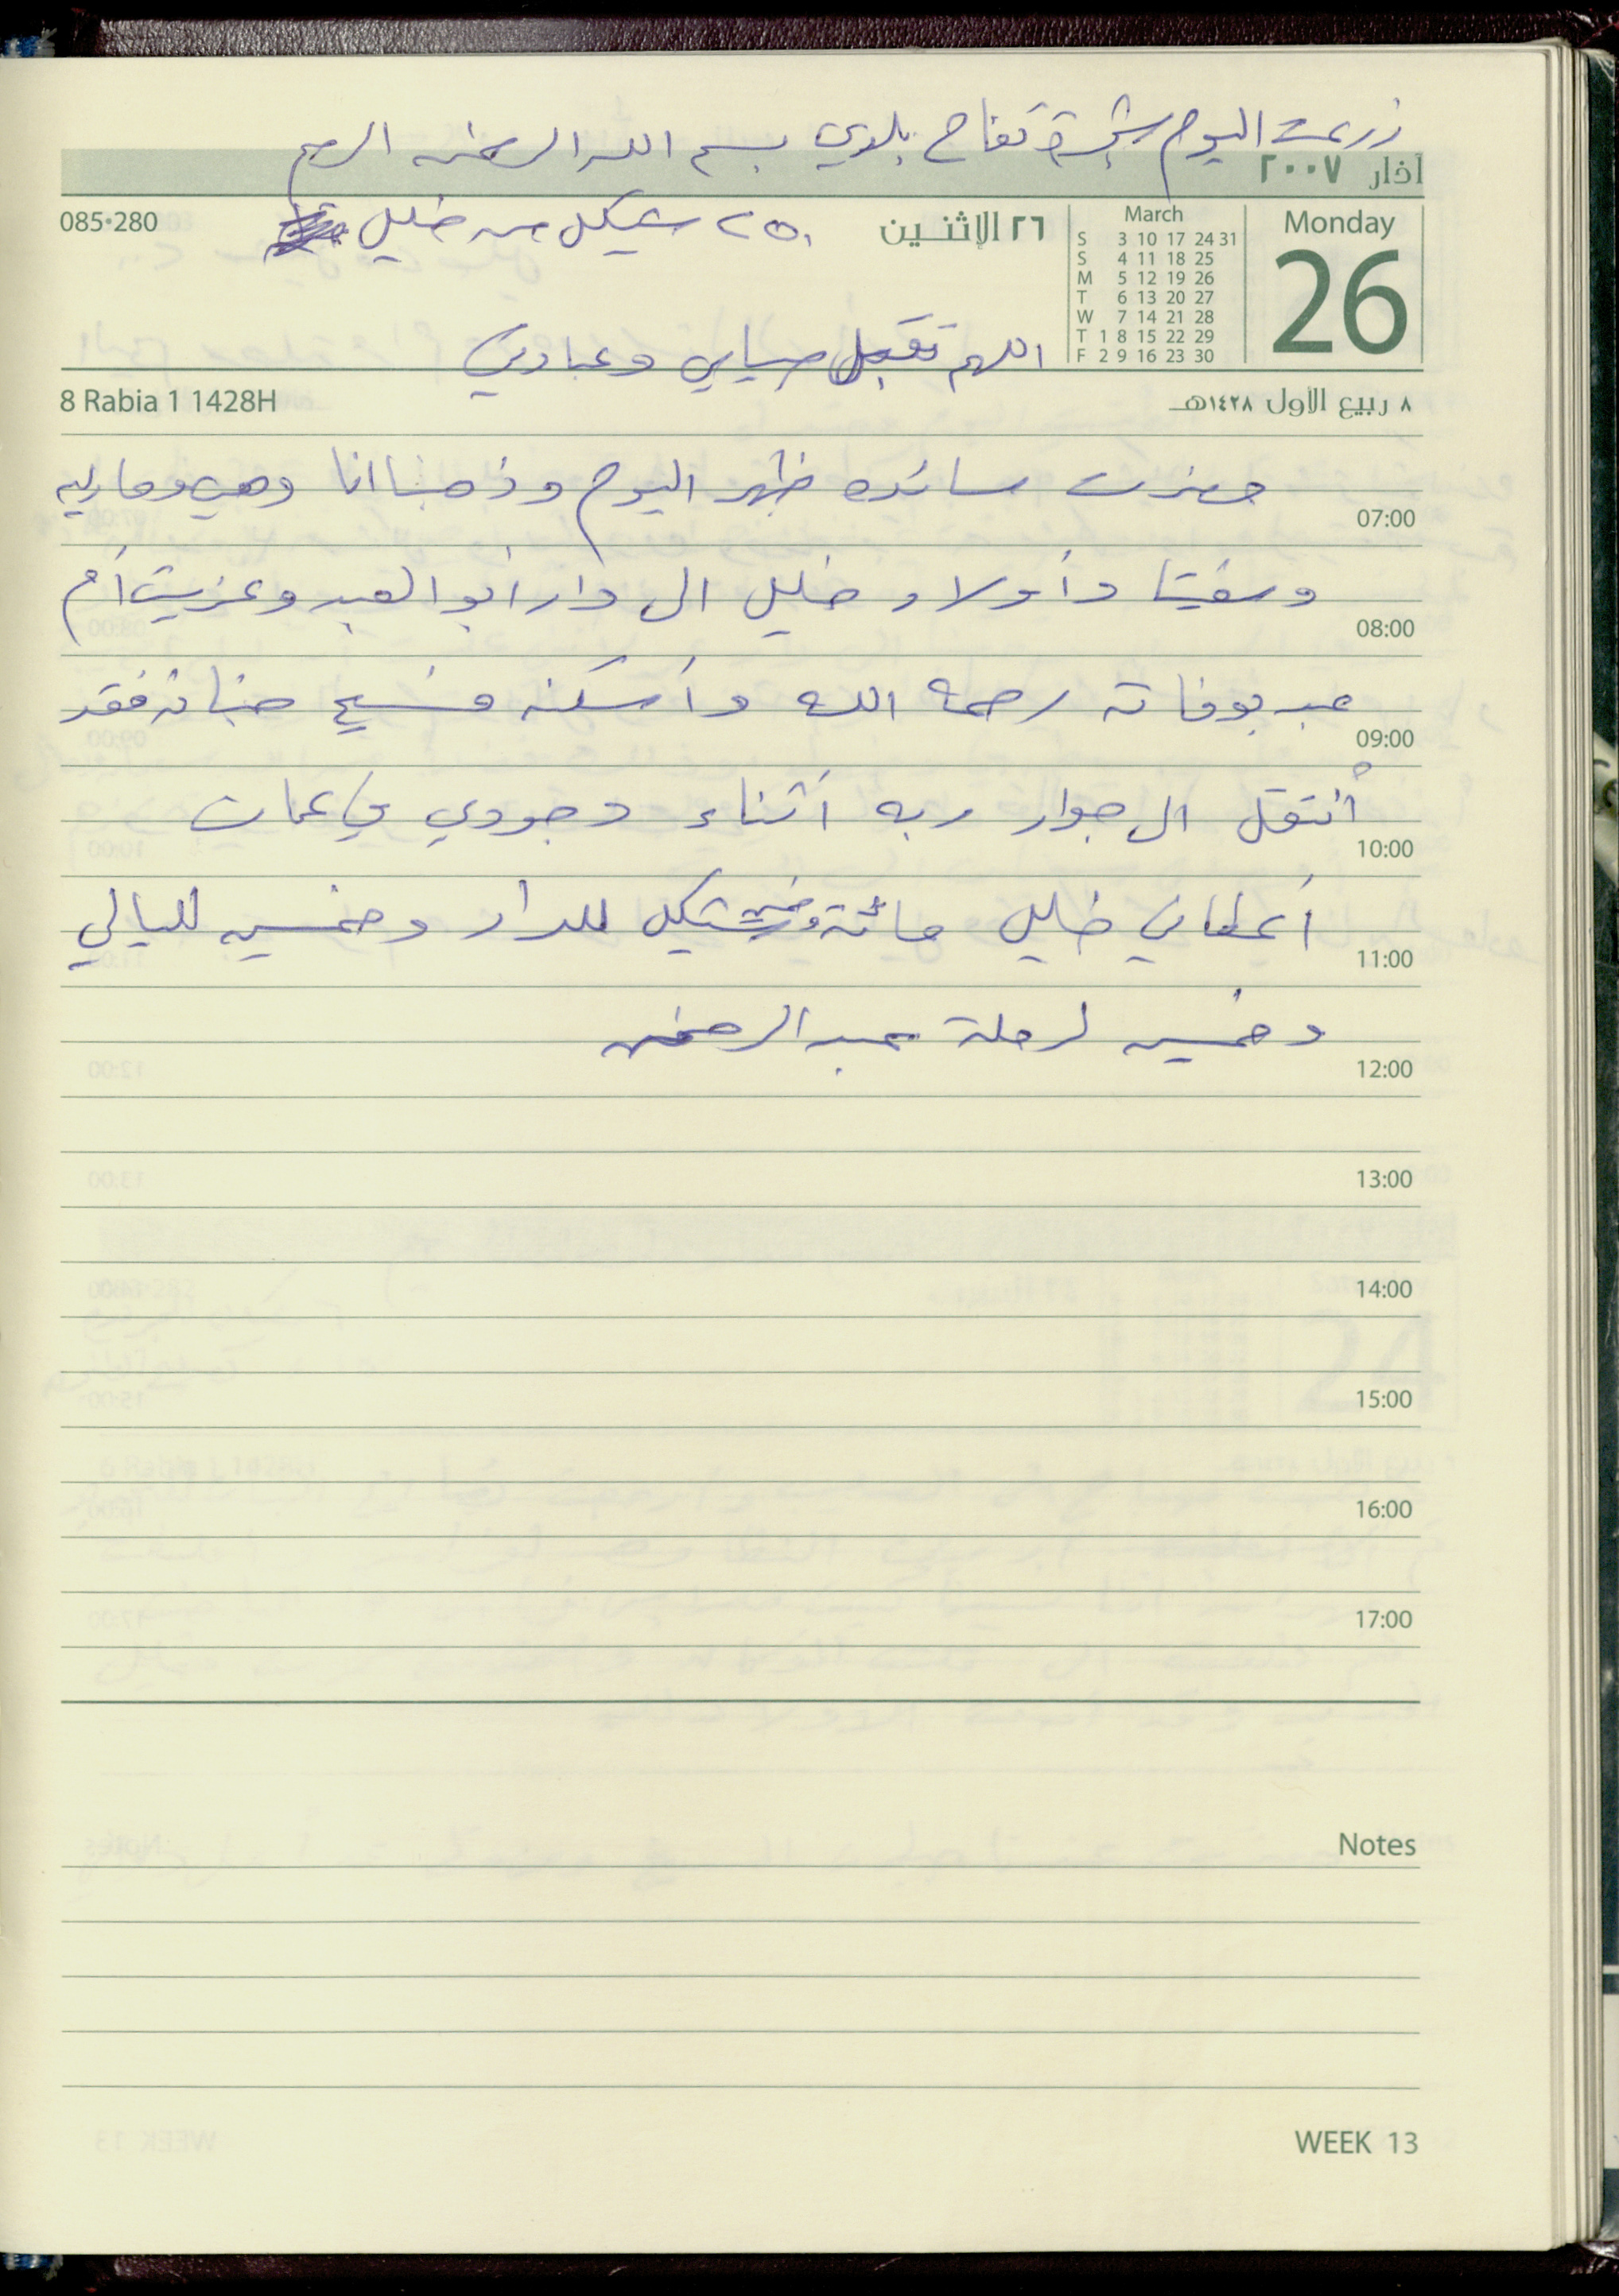 زرعت اليوم شجرة تفاح بلدي بسم الله الرحمن الرحيم
آذار ٢٠٠٧
085·280
٢٥٠ شيكل من خليل
٢٦ الإثنين
March
S 3 10 17 24 31
S 4 11 18 25
M 5 12 19 26
T 6 13 20 27
W 7 14 21 28
T 1 8 15 22 29
F 2 9 16 23 30
Monday
26
اللهم تقبل صيامي وعبادتي
8 Rabia 1 1428H
٨ ربيع الأول ١٤٢٨هـ
حضرت سائده ظهر اليوم وذهبنا انا وهي وماريه
07:00
وأولاد خليل الى دار أبو العبد وعزيت أم
08:00
عبد بوفاته رحمه الله وأسكنه فسيح جنانه فقد
09:00
أنتقل الى جوار ربه أثناء وجودي في عمان
10:00
أعطاني خليل مائة وخمسين شيكل للدار وخمسين لليالي
11:00
وخمسين لرحلة عبد الرحمن
12:00
13:00
14:00
15:00
16:00
17:00
Notes
WEEK 13